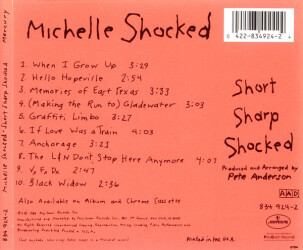 Michelle Shocked
0 422-834924-2 4
1. When I Grow Up 3:29
2. Hello Hopeville 2:54
3. Memories of East Texas 3:33
4. (Making the Run to) Gladewater 3:03
5. Graffiti Limbo 3:27
6. If Love Was a Train 4:03
7. Anchorage 3:21
8. The L&N Don't Stop Here Anymore 4:07
9. V.F.D. 2:47
10. Black Widow 2:36
Short
Sharp
Shocked
Produced and Arranged by
Pete Anderson
Also Available on Album and Chrome Cassette
AAD
834 924-2
Printed in the U.S.A.
Michelle Shocked - Short Sharp Shocked Mercury
834 924-2